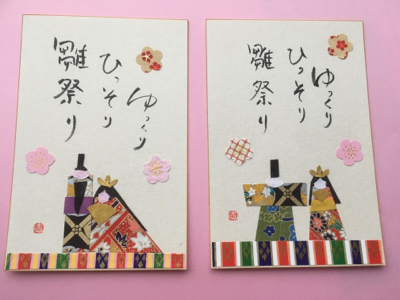 ゆっくり
ひっそり
雛祭り
ゆっくり
ひっそり
雛祭り